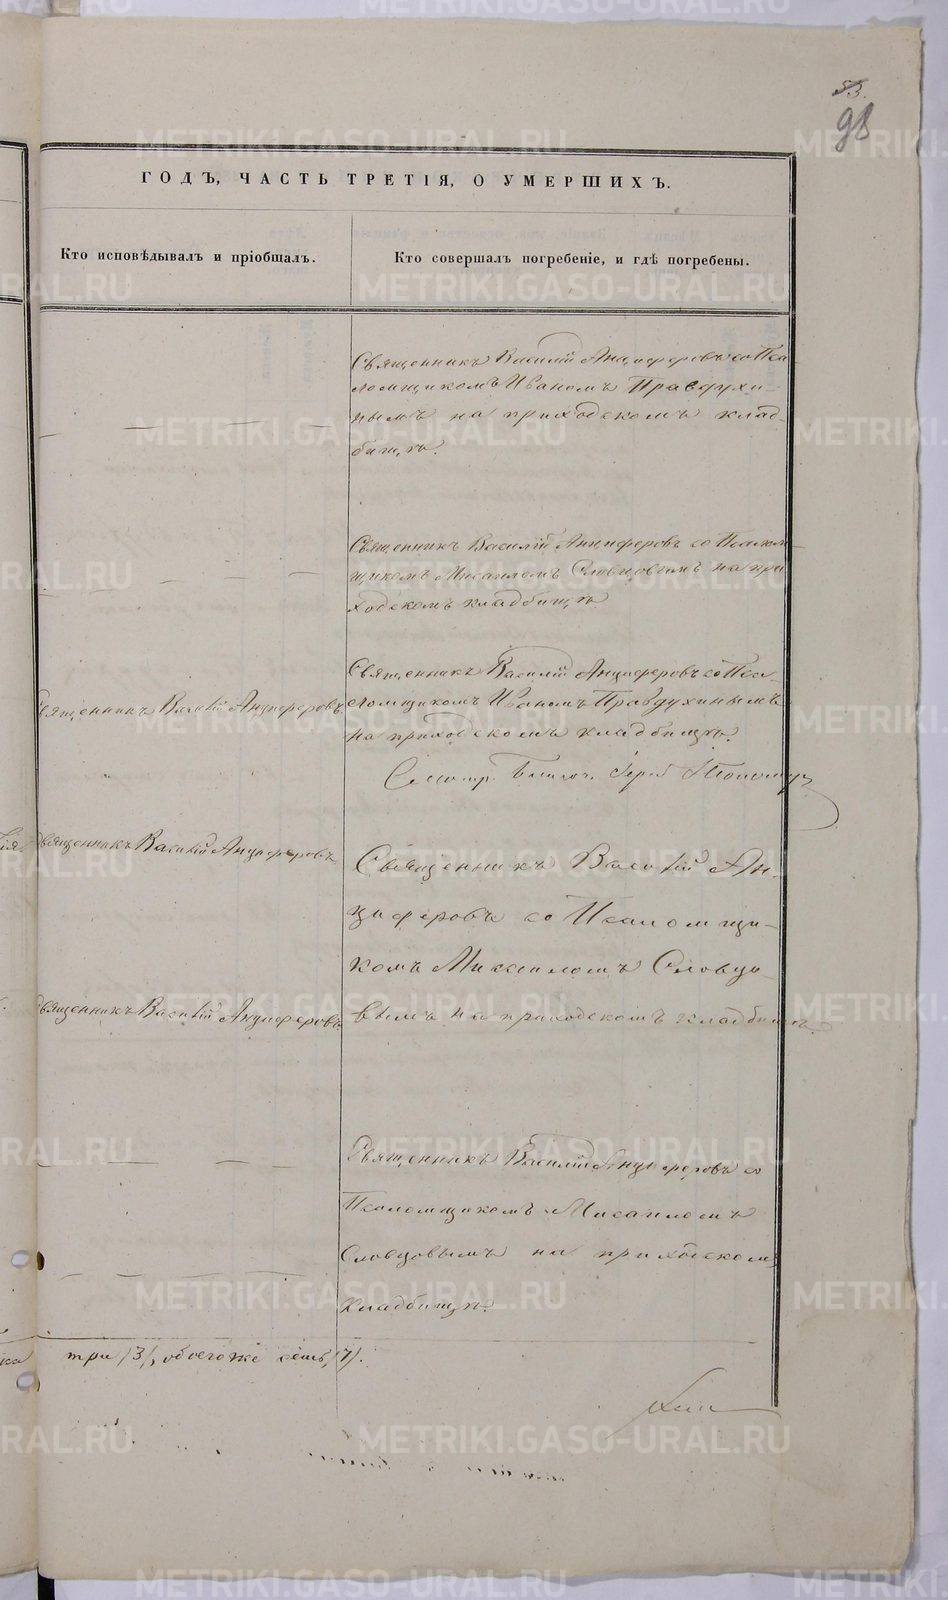 53.
98
ГОДЪ, ЧАСТЬ ТРЕТІЯ, О УМЕРШИХЪ.
Кто исповѣдывалъ и пріобщалъ.
Кто совершалъ погребеніе, и гдѣ погребены.
Священникъ Василій Анциферовъ со Пса-
ломщикомъ Иваномъ Правдухи-
нымъ на приходскомъ клад-
бищѣ.
Священникъ Василій Анциферовъ со Псалом-
щикомъ Мисаиломъ Словцовымъ на при
ходскомъ кладбищѣ
Священникъ Василій Анциферовъ со Пса-
ломщикомъ Иваномъ Правдухинымъ
на приходскомъ кладбищѣ.
Священникъ Василій Анциферовъ
Священникъ Василій Анциферовъ
Священникъ Василій Ан-
циферовъ со Псаломщи-
комъ Мисаиломъ Словцо-
вымъ на приходскомъ кладбищѣ.
Священникъ Василій Анциферовъ
Священникъ Василій Анциферовъ со
Псаломщикомъ Мисаиломъ
Словцовымъ на приходскомъ
кладбищѣ.
три /3/, обоего же семь /7/.
METRIKI.GASO-URAL.RU